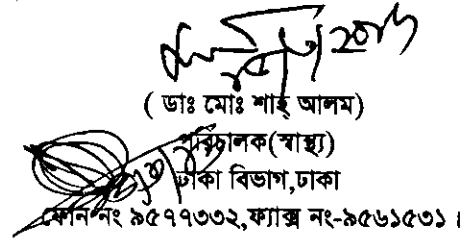 ( ডাঃ মোঃ শাহ্ আলম)
পরিচালক(স্বাস্থ্য)
ঢাকা বিভাগ,ঢাকা
ফোন নং ৯৫৭৭৩৩২,ফ্যাক্স নং-৯৫৬১৫৩১ ।